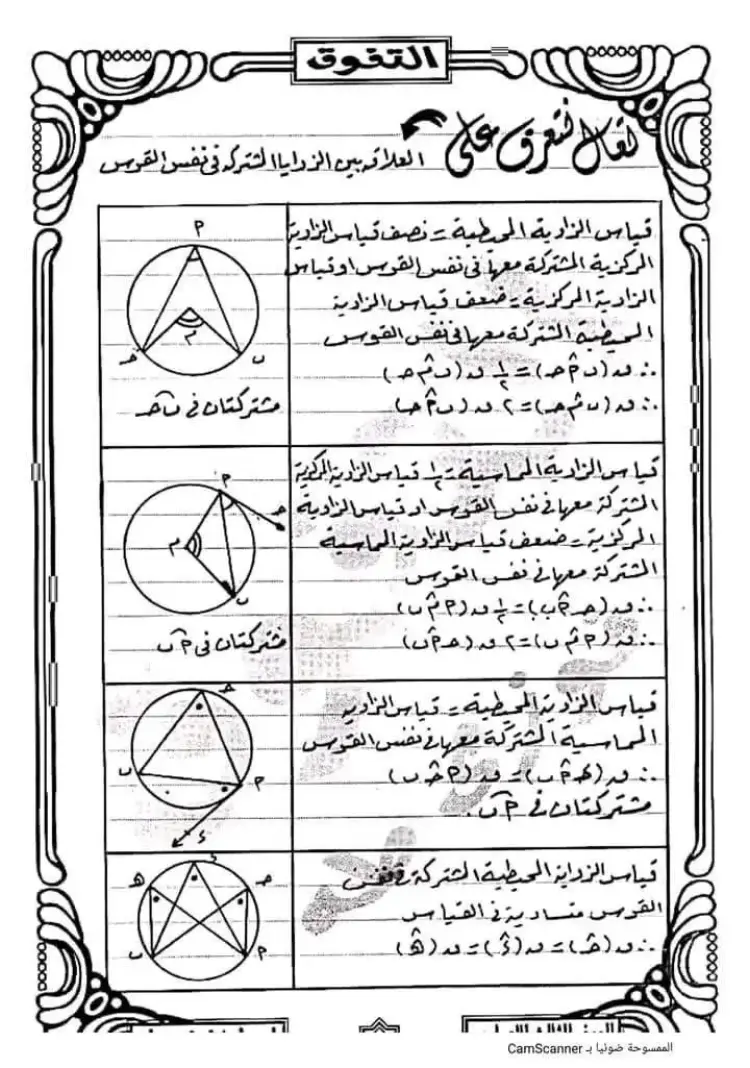 التفوق
تعال نتعرف على
العلاقه بين الزوايا المشتركه فى نفس القوس
قياس الزاوية المحيطية = نصف قياس الزاوية
المركزية المشتركة معها فى نفس القوس او قياس
الزاوية المركزية = ضعف قياس الزاوية
المحيطية المشتركة معها فى نفس القوس
∴ ق (ب م̂ ح) = ١/٢ ق (ب م̂ ح)
∴ ق (ب م̂ ح) = ٢ ق (ب م̂ ح)
م
م
ح
ب
مشتركتان فى ب ح
قياس الزاوية المماسية = ١/٢ قياس الزاوية المركزية
المشتركة معها فى نفس القوس او قياس الزاوية
المركزية = ضعف قياس الزاوية المماسية
المشتركة معها فى نفس القوس
∴ ق (ح م̂ ب) = ١/٢ ق (م م̂ ب)
∴ ق (م م̂ ب) = ٢ ق (ح م̂ ب)
م
ح
م
ب
مشتركتان فى م ب
قياس الزاوية المحيطية = قياس الزاوية
المماسية المشتركة معها فى نفس القوس
∴ ق (ء م̂ ب) = ق (م ح̂ ب)
مشتركتان فى م ب .
ح
ب
م
ء
قياس الزواية المحيطية المشتركة فى نفس
القوس متساوية فى القياس
∴ ق (ح̂) = ق (ء̂) = ق (ه̂)
ء
ه
ح
ب
م
الممسوحة ضوئيا بـ CamScanner